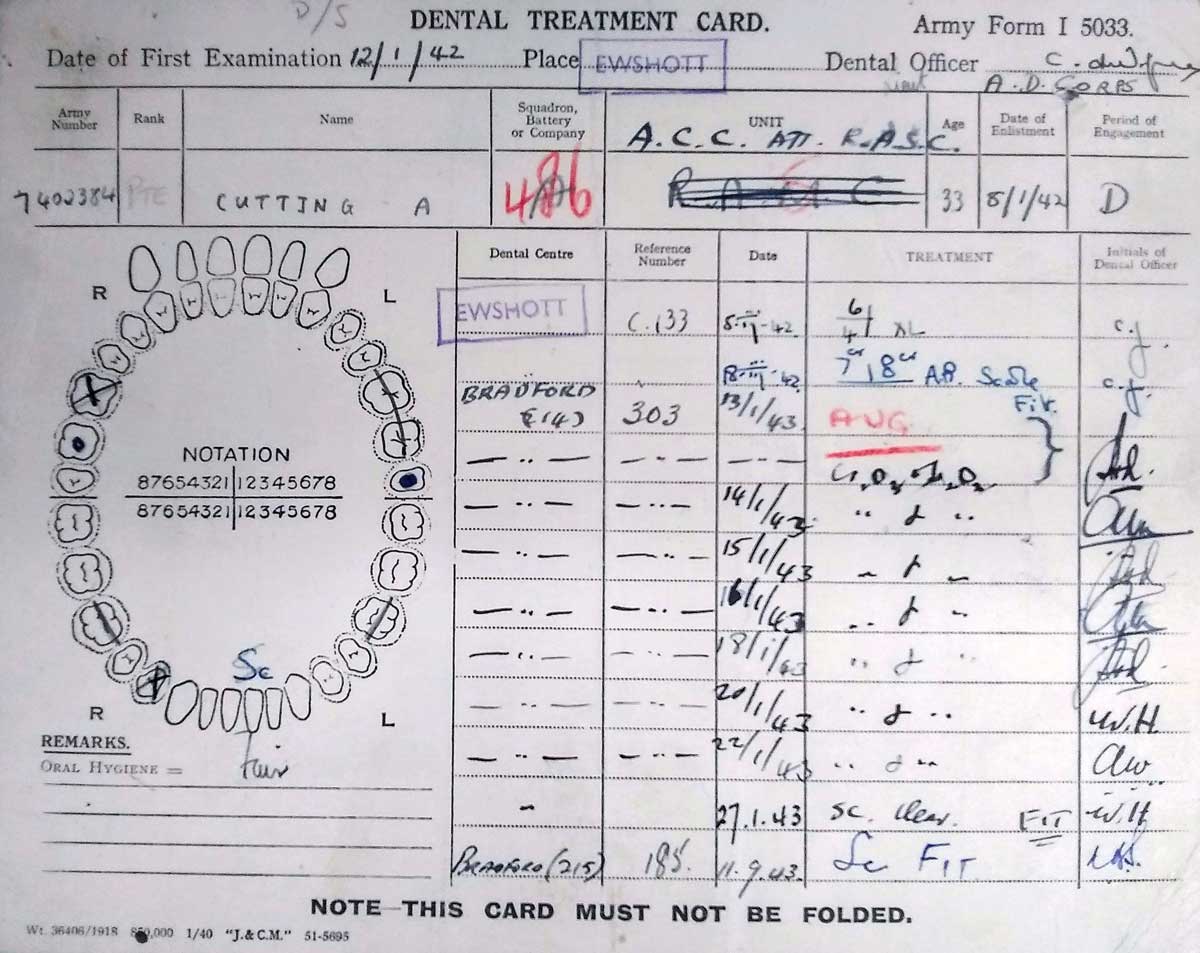 D/S
DENTAL TREATMENT CARD.
Army Form I 5033.
Date of First Examination 12/1/42 Place EWSHOTT Dental Officer
A.D. CORPS
Army Number Rank Name Squadron, Battery or Company UNIT Age Date of Enlistment Period of Engagement
A.C.C. ATT. R.A.S.C.
7402384 PTE CUTTING A 486 R.A.M.C 33 8/1/42 D
Dental Centre Reference Number Date TREATMENT Initials of Dental Officer
R L
EWSHOTT C.133 42 6 4
42 7 8 Scale
BRADFORD (14) 303 13/1/43 AVG Fit.
NOTATION
87654321 12345678
87654321 12345678
14/1/43
15/1/43
16/1/43
18/1/43
20/1/43 W.H.
22/1/43 AW
27.1.43 Sc. Clear. FIT W.H
BRADFORD (215) 185. 11.9.43. Sc FIT
Sc
R L
REMARKS.
ORAL HYGIENE = fair
NOTE—THIS CARD MUST NOT BE FOLDED.
Wt. 36406/1918 850,000 1/40 "J. & C.M." 51-5695